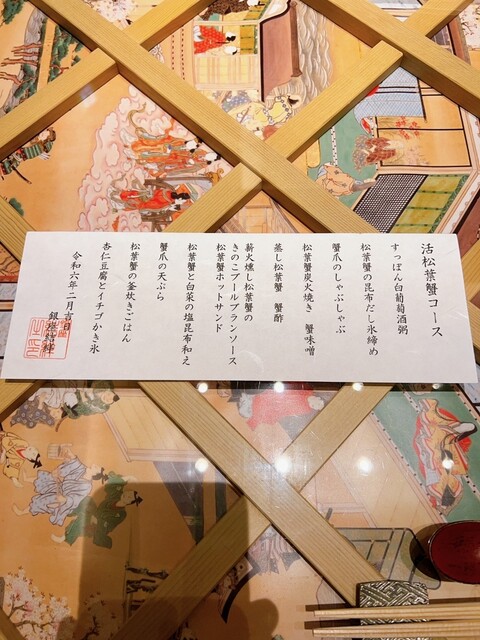 活松葉蟹コース
すっぽん白葡萄酒粥
松葉蟹の昆布だし氷締め
蟹爪のしゃぶしゃぶ
松葉蟹炭火焼き　蟹味噌
蒸し松葉蟹　蟹酢
薪火燻し松葉蟹の
きのこブールブランソース
松葉蟹ホットサンド
松葉蟹と白菜の塩昆布和え
蟹爪の天ぷら
松葉蟹の釜炊きごはん
杏仁豆腐とイチゴかき氷
令和六年二月吉日